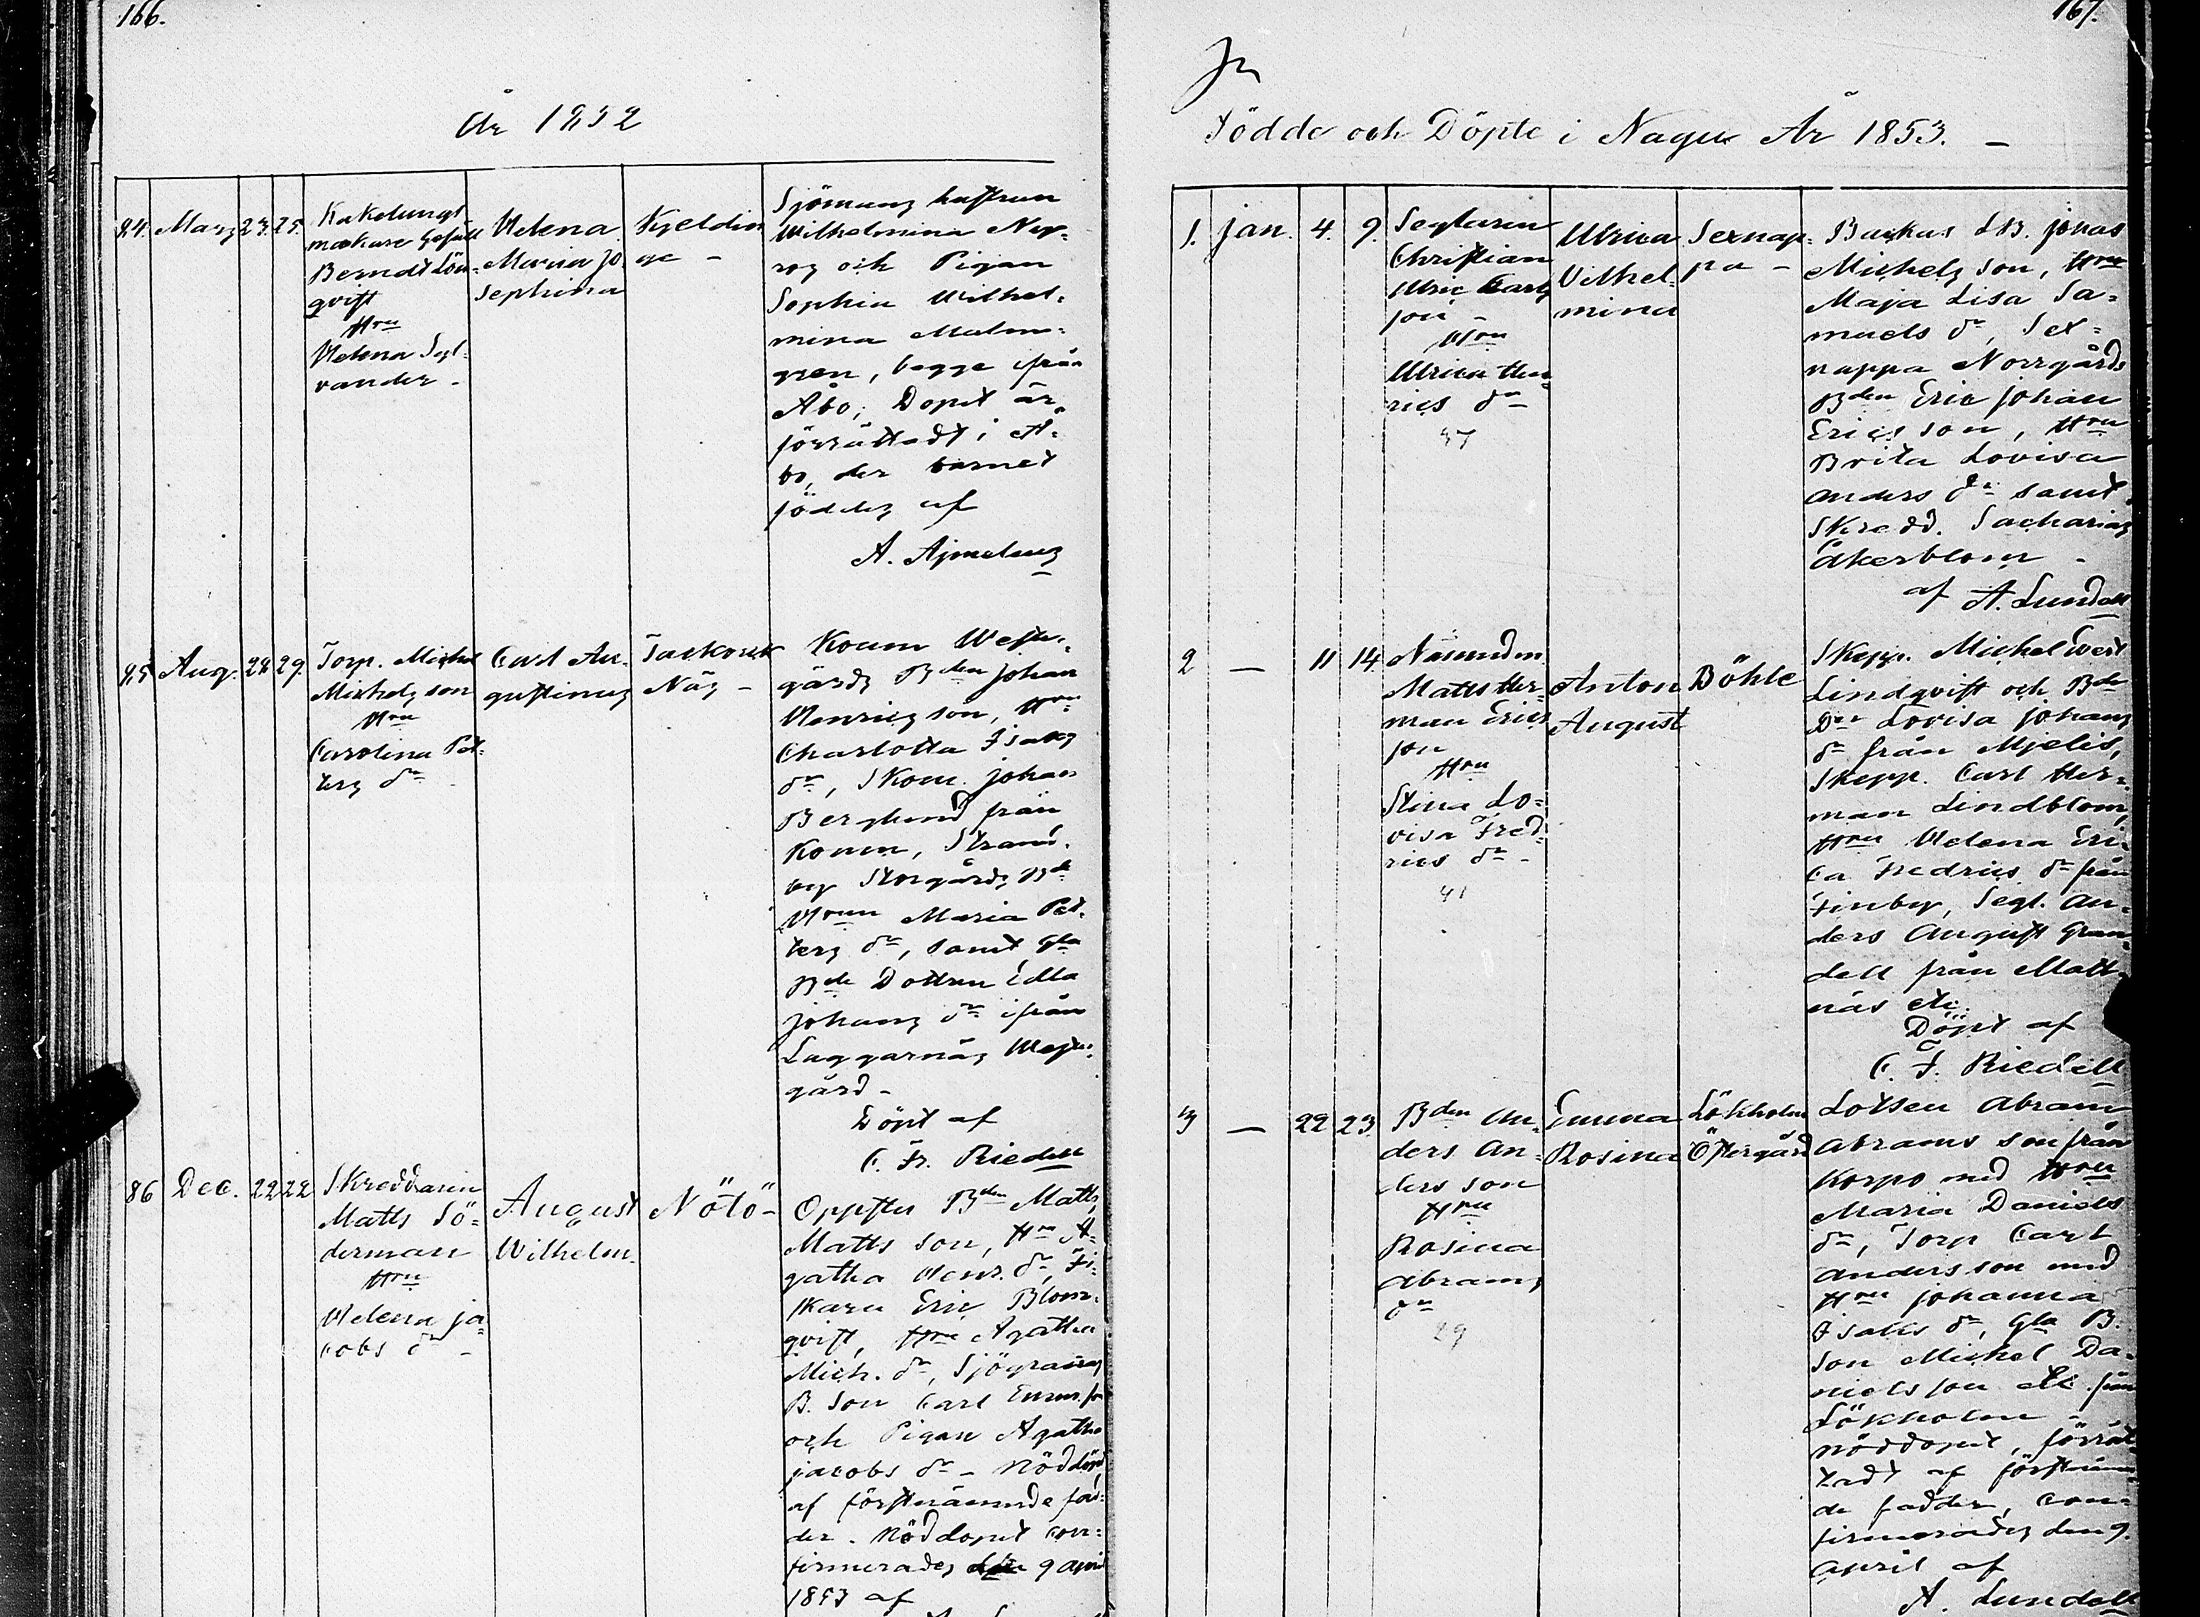 166.
År 1852
84. Mars 23. 25.
Kakelungs
makare Gesäll
Berndt Lön-
qvist
Hru
Helena Syl-
vander -
Helena
Maria Jo-
sephina
Kjeldin
ge -
Sjömans hustrun
Wilhelmina
och Pigan
Sophia Wilhel-
mina Malm-
gren, begge ifrån
Åbo; Dopet är
förrättadt i Å-
bo, der barnet
föddes af
A. Ajmelæus
85 Aug. 28 29.
Torp. Michel
Michels son
Hru
Carolina Pet-
ters dr
Carl Au-
gustinus
Näs -
Koum West-
gårds Bden Johan
Henrics son, Hru
Charlotta Isaks
dr, Skom. Johan
Berglund från
Koum, Strand-
by Storgårds Bde
Hrun Maria Pet-
ters dr, samt Gla
Bde Dottren Edla
Johans dr ifrån
Laggarnäs West-
gård -
Döpt af
C. Fr. Riedell
86 Dec. 22 22
Skreddaren
Matts Sö-
derman
Hru
Helena Ja-
cobs dr -
August
Wilhelm.
Nötö -
Oppster Bden Matts
Matts son, Hru A-
gatha Henr. dr, Fi-
skaren Eric Blom-
qvist, Hru Agatha
Mich. dr, Sjögranns
B. Son Carl
och Pigan Agatha
Jacobs dr - Nöddöpt
af förstnämnde fad-
der. Nöddopet con-
firmerades 9 April
1853 af
167.
Födde och Döpte i Nagu År 1853. -
1. Jan. 4. 9.
Seglaren
Christian
Ulric Carls
son -
Hru
Ulrica Hen-
rics dr -
37
Ulrica
Vilhel-
mina
Sexnap-
pa -
Backas LB. Jonas
Michels son, Hru
Maja Lisa Sa-
muels dr, Sex-
nappa Norrgårds
Bden Eric Johan
Erics son, Hru
Brita Lovisa
Anders dr samt
Skredd. Sacharias
Åkerblom -
af A. Lundell
2 - 11 14
Nämndm.
Matts Her-
man Erics
son
Hru
Stina Lo-
visa Fred-
rics dr -
41
Anton
August
Böhle
Skepp. Michel Wert
Lindqvist och Bde
Dr Lovisa Johans
dr från Mjelis,
Skepp. Carl Her-
man Lindblom,
Hru Helena Eri-
ca Fredrics dr från
Finby, Segl. An-
ders August Gran-
dell från Matt-
näs etc.
Döpt af
C. F. Riedell
3 - 22 23
Bden An-
ders An-
ders son
Hru
Rosina
Abrams
dr
29
Emma
Rosina
Lökholm
Östergård
Lotsen Abram
Abrams son från
Korpo med Hru
Maria Daniels
dr, Torp Carl
Anders son med
Hru Johanna
Isaks dr, Gla B.
Son Michel Da-
niels son etc från
Lökholm -
Nöddopet, förrät-
tadt af förstnämn-
de fadder, con-
firmerades den 9.
April af
A. Lundell